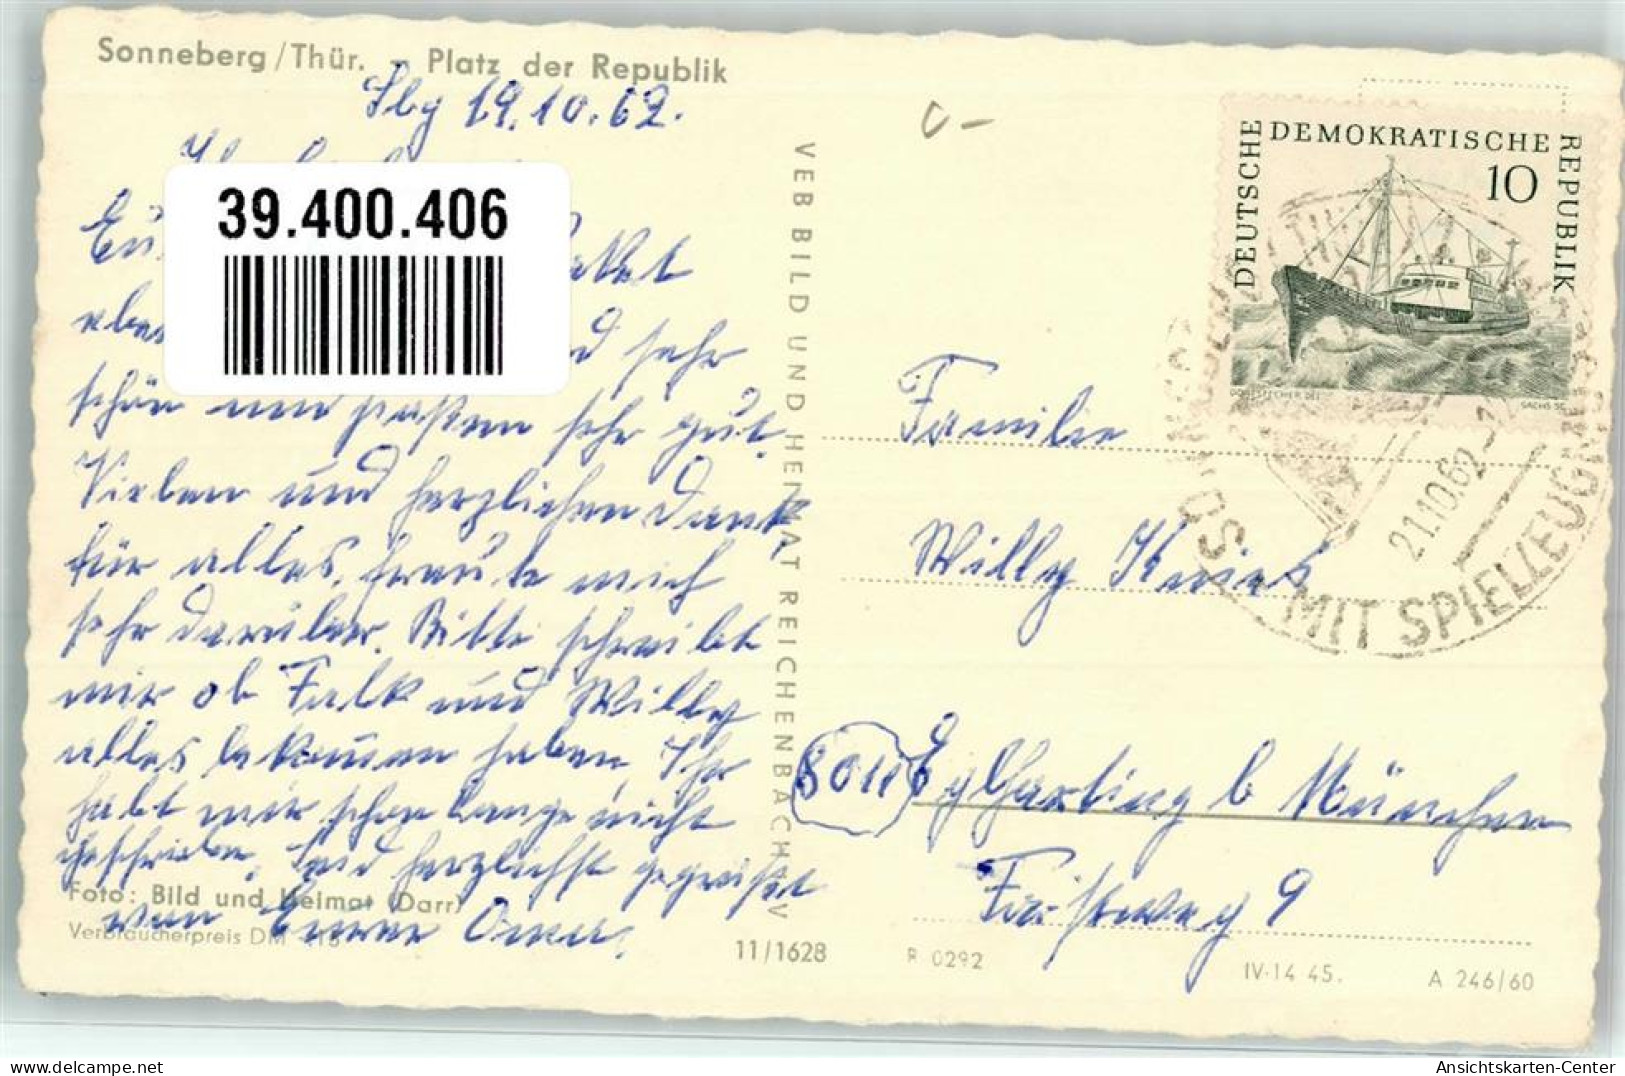 Sonneberg/Thür. - Platz der Republik
Sbg 19.10.62.
39.400.406
sehr
schön und passen sehr gut.
Vielen und herzlichen Dank
für alles, freute mich
sehr darüber. Bitte schreibt
mir ob Falk und Willy
alles bekommen haben. Ihr
habt mir schon lange nicht
geschrieben. Seid herzlichst gegrüßt
von Eurer Oma.
Foto: Bild und Heimat (Darr)
Verbraucherpreis DM
11/1628
VEB BILD UND HEIMAT REICHENBACH I. V
DEUTSCHE DEMOKRATISCHE REPUBLIK
10
SACHS SC.
21.10.62
MIT SPIELZEUG
Familie
Willy
8011 Eglharting b München
9
R 0292
IV-14 45.
A 246/60
Ansichtskarten-Center
www.delcampe.net